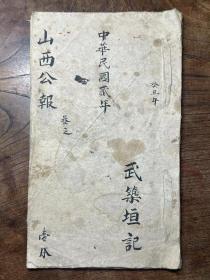 癸丑年
中華民國貳年
山西公報
武築垣記